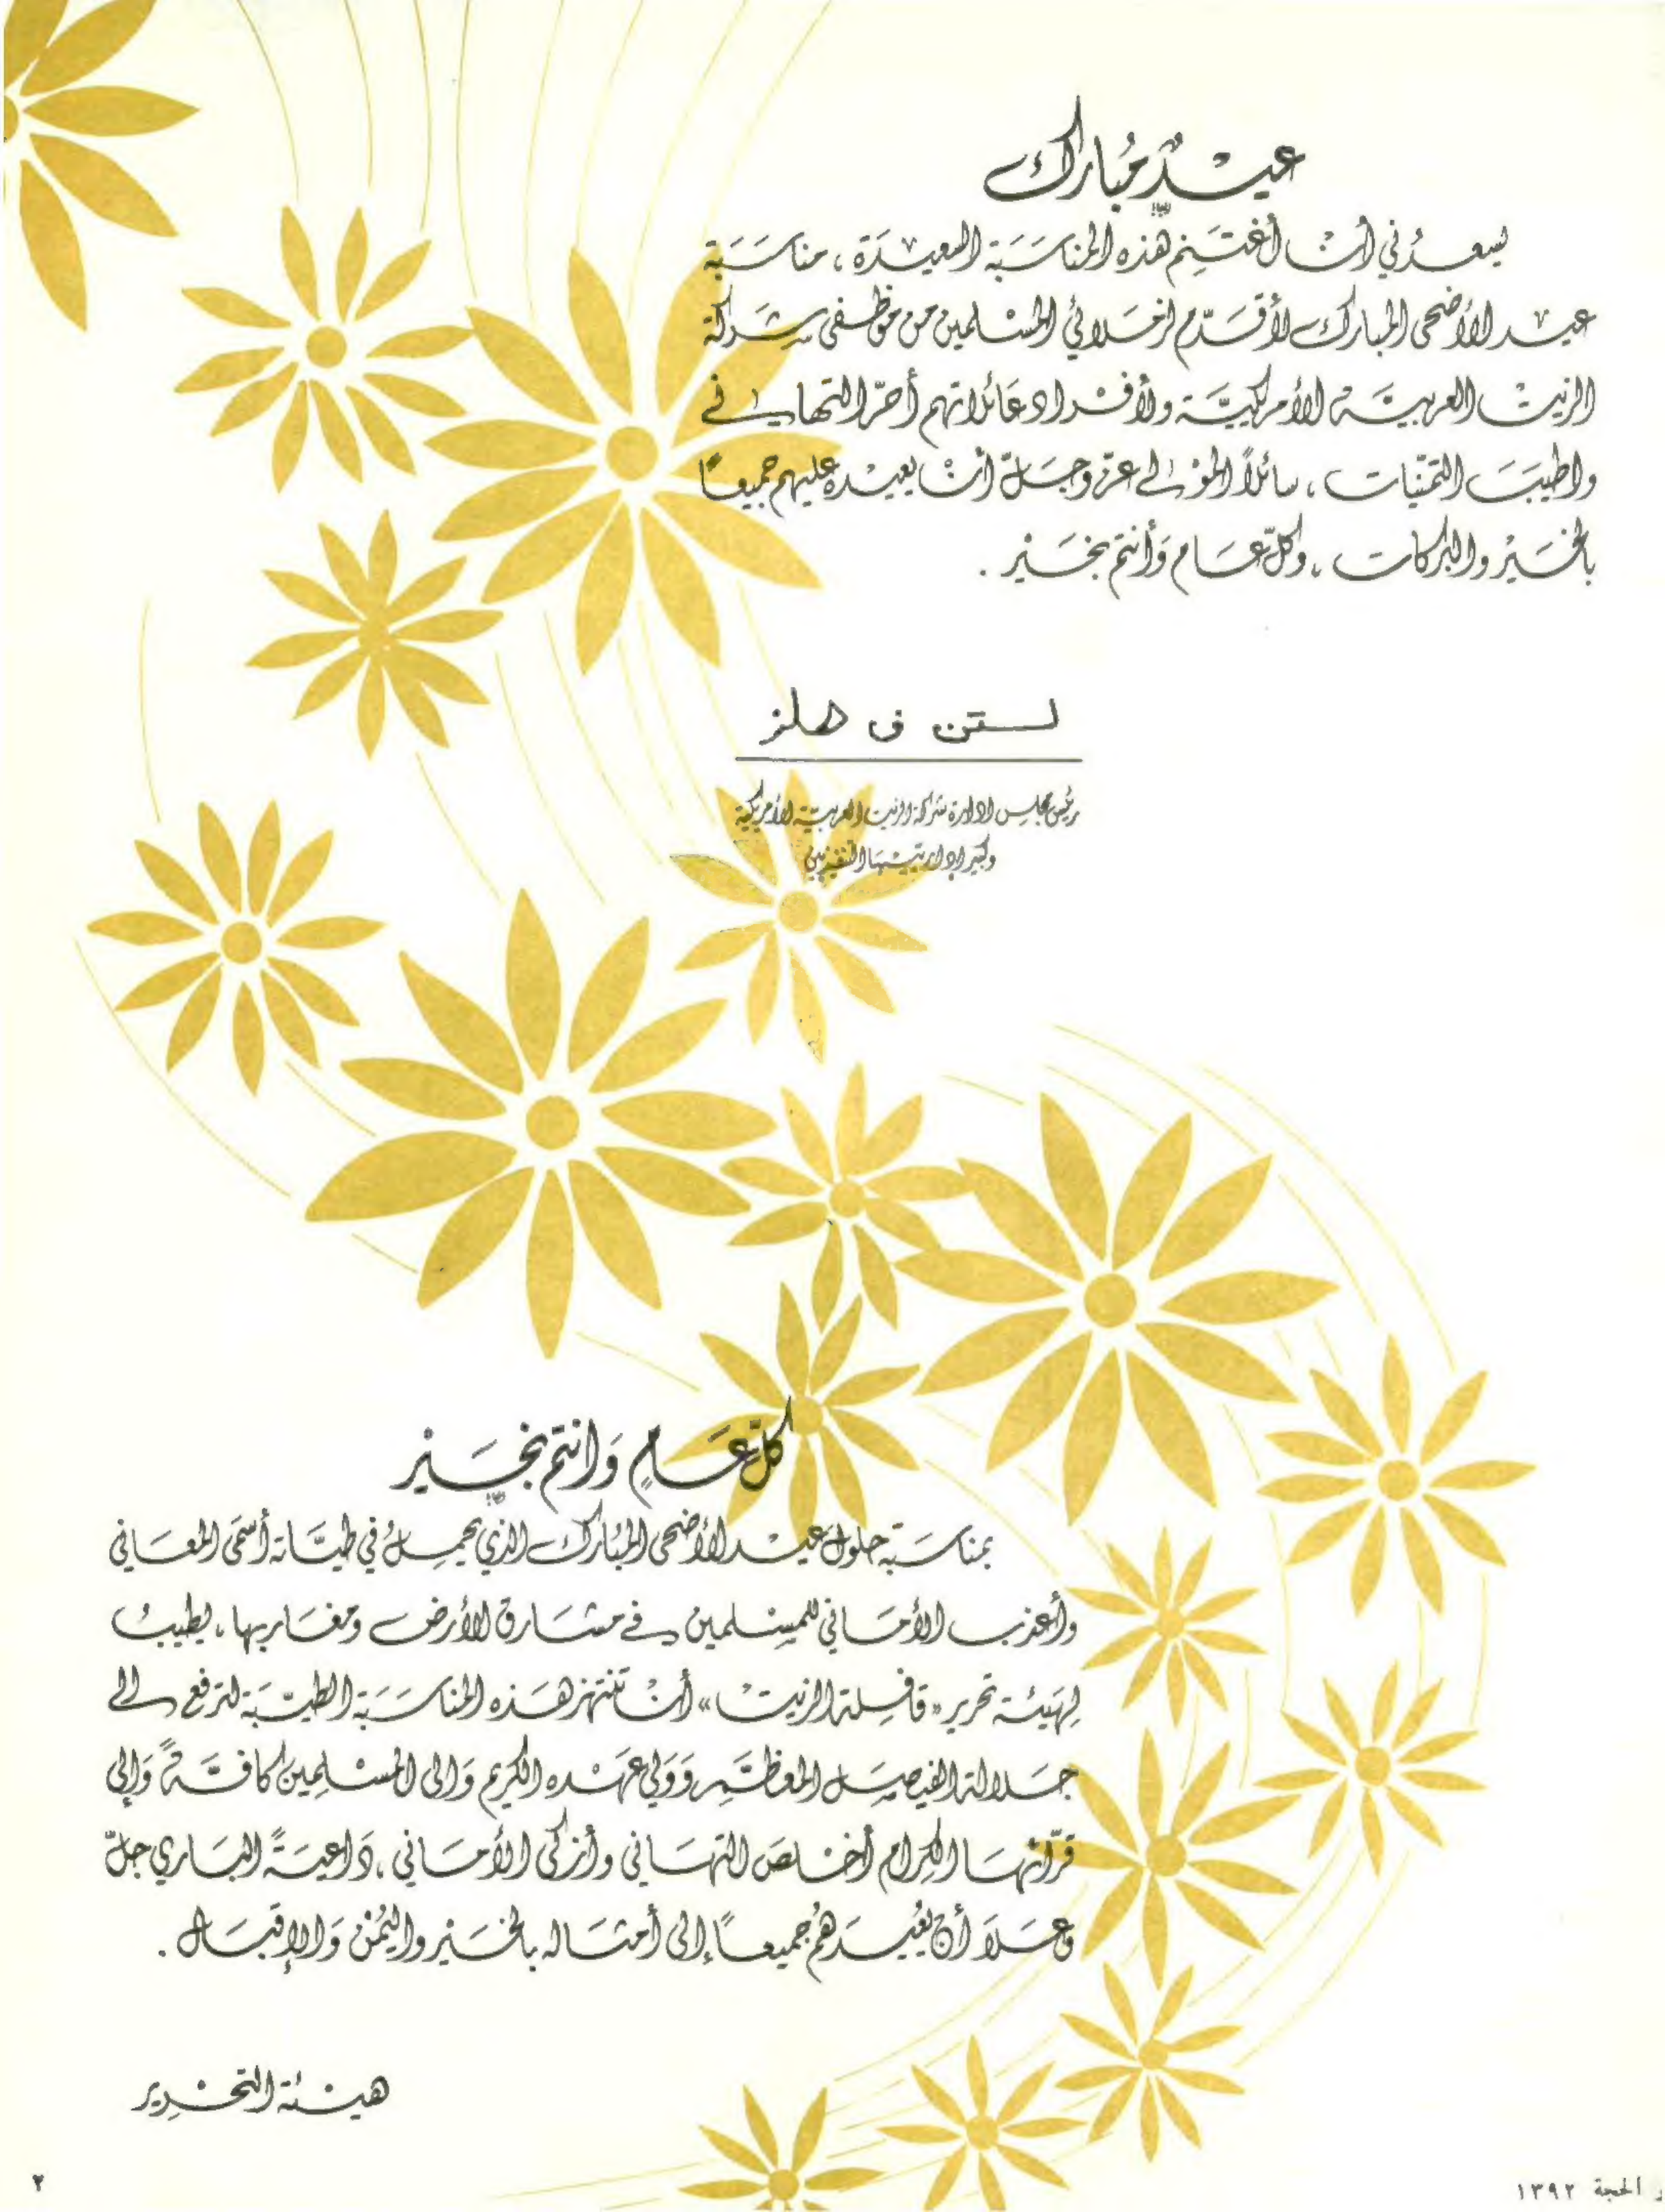 عيد مبارك
يسعدني أن أغتنم هذه المناسبة السعيدة، مناسبة
عيد الأضحى المبارك لأقدّم لزملائي المسلمين من موظفي شركة
الزيت العربية الأمريكية ولأفراد عائلاتهم أحرّ التهاني
وأطيب التمنيات، سائلاً المولى عزّ وجلّ أن يعيده عليهم جميعاً
بالخير والبركات، وكلّ عام وأنتم بخير.
لستن ف هلز
رئيس مجلس إدارة شركة الزيت العربية الأمريكية
وكبير إدارييها التنفيذيين
كلّ عامٍ وَانتم بخَير
بمناسبة حلول عيد الأضحى المبارك الذي يحمل في طيّاته أسمى المعاني
وأعذب الأماني للمسلمين في مشارق الأرض ومغاربها، يطيب
لهيئة تحرير «قافلة الزيت» أن تنتهز هذه المناسبة الطيّبة لترفع إلى
جلالة الفيصل المعظّم وَوَلي عهده الكريم وَإلى المسلمين كافّةً وَإلى
قرّائها الكرام أخلص التهاني وأزكى الأماني، داعيةً الباري جلّ
وعلا أن يعيدهم جميعاً إلى أمثاله بالخير واليُمن وَالإقبال.
هيئة التحرير
الحجة ١٣٩٢
٢